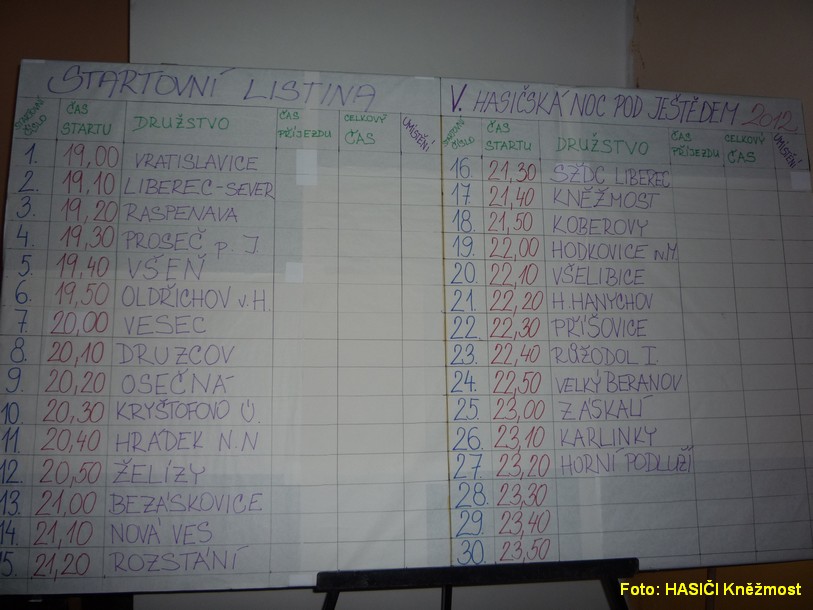 STARTOVNÍ LISTINA
STARTOVNÍ ČÍSLO ČAS STARTU DRUŽSTVO ČAS PŘÍJEZDU CELKOVÝ ČAS UMÍSTĚNÍ
1. 19,00 VRATISLAVICE
2. 19,10 LIBEREC-SEVER
3. 19,20 RASPENAVA
4. 19,30 PROSEČ p. J.
5. 19,40 VŠEŇ
6. 19,50 OLDŘICHOV v.H.
7. 20,00 VESEC
8. 20,10 DRUZCOV
9. 20,20 OSEČNÁ
10. 20,30 KRYŠTOFOVO Ú.
11. 20,40 HRÁDEK N.N
12. 20,50 ŽELÍZY
13. 21,00 BEZÁSKOVICE
14. 21,10 NOVÁ VES
15. 21,20 ROZSTÁNÍ
V. HASIČSKÁ NOC POD JEŠTĚDEM 2012
STARTOVNÍ ČÍSLO ČAS STARTU DRUŽSTVO ČAS PŘÍJEZDU CELKOVÝ ČAS UMÍSTĚNÍ
16. 21,30 SŽDC LIBEREC
17. 21,40 KNĚŽMOST
18. 21,50 KOBEROVY
19. 22,00 HODKOVICE n.M.
20. 22,10 VŠELIBICE
21. 22,20 H.HANYCHOV
22. 22,30 PŘÍŠOVICE
23. 22,40 RŮŽODOL I.
24. 22,50 VELKÝ BERANOV
25. 23,00 ZÁSKALÍ
26. 23,10 KARLINKY
27. 23,20 HORNÍ PODLUŽÍ
28. 23,30
29. 23,40
30. 23,50
Foto: HASIČI Kněžmost